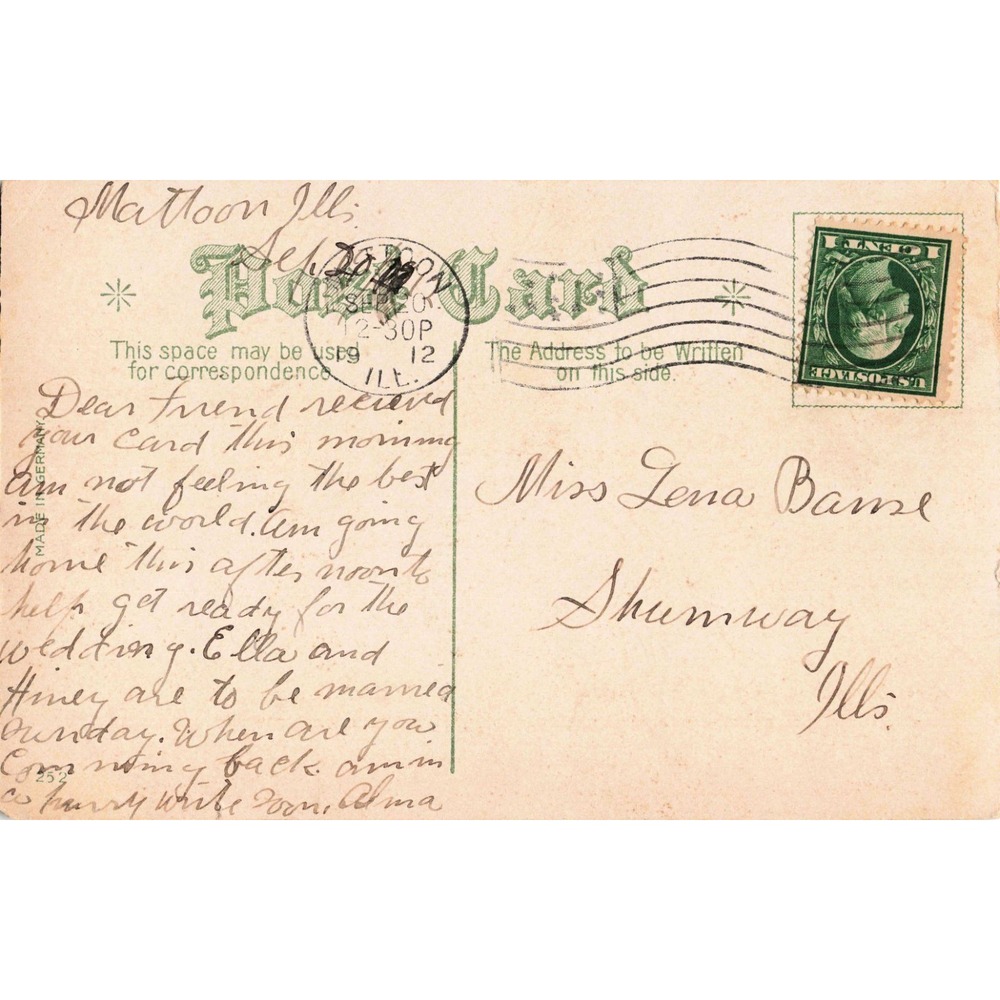 Mattoon Ills.
Sep. 20
Post Card
MATTOON
SEP 20
12-30P
1912
ILL.
1 CENT 1
U.S. POSTAGE
This space may be used
for correspondence.
The Address to be Written
on this side.
MADE IN GERMANY
Dear Friend recievd
your card this morning
am not feeling the best
in the world. Am going
home this after noon to
help get ready for the
wedding. Ella and
Hiney are to be married
Sunday. When are you
Comming back. am in
a hurry write soon. Alma
252
Miss Lena Banse
Shumway
Ills.